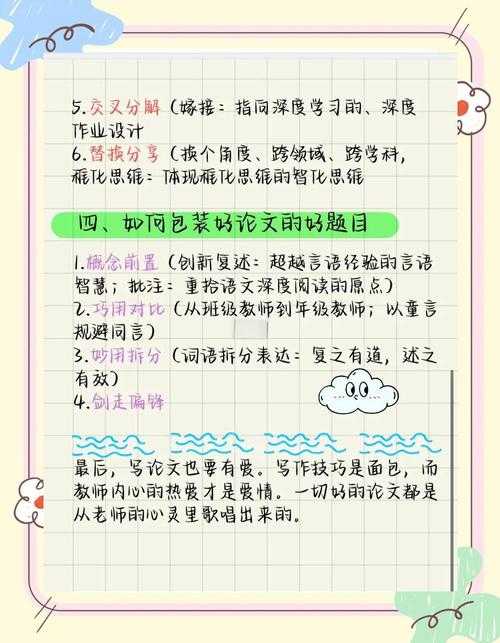 5.交叉分解（嫁接：指向深度学习的、深度
作业设计
6.替换分享（换个角度、跨领域、跨学科，
框化思维：体现框化思维的智化思维
四、如何包装好论文的好题目
1.概念前置（创新复述：超越言语经验的言语
智慧；批注：重拾语文深度阅读的原点）
2.巧用对比（从班级教师到年级教师；以童言
规避同言）
3.妙用拆分（词语拆分表达：复之有道，述之
有效）
4.剑走偏锋
最后，写论文也要有爱。写作技巧是面包，而
教师内心的热爱才是爱情。一切好的论文都是
从老师的心灵里歌唱出来的。